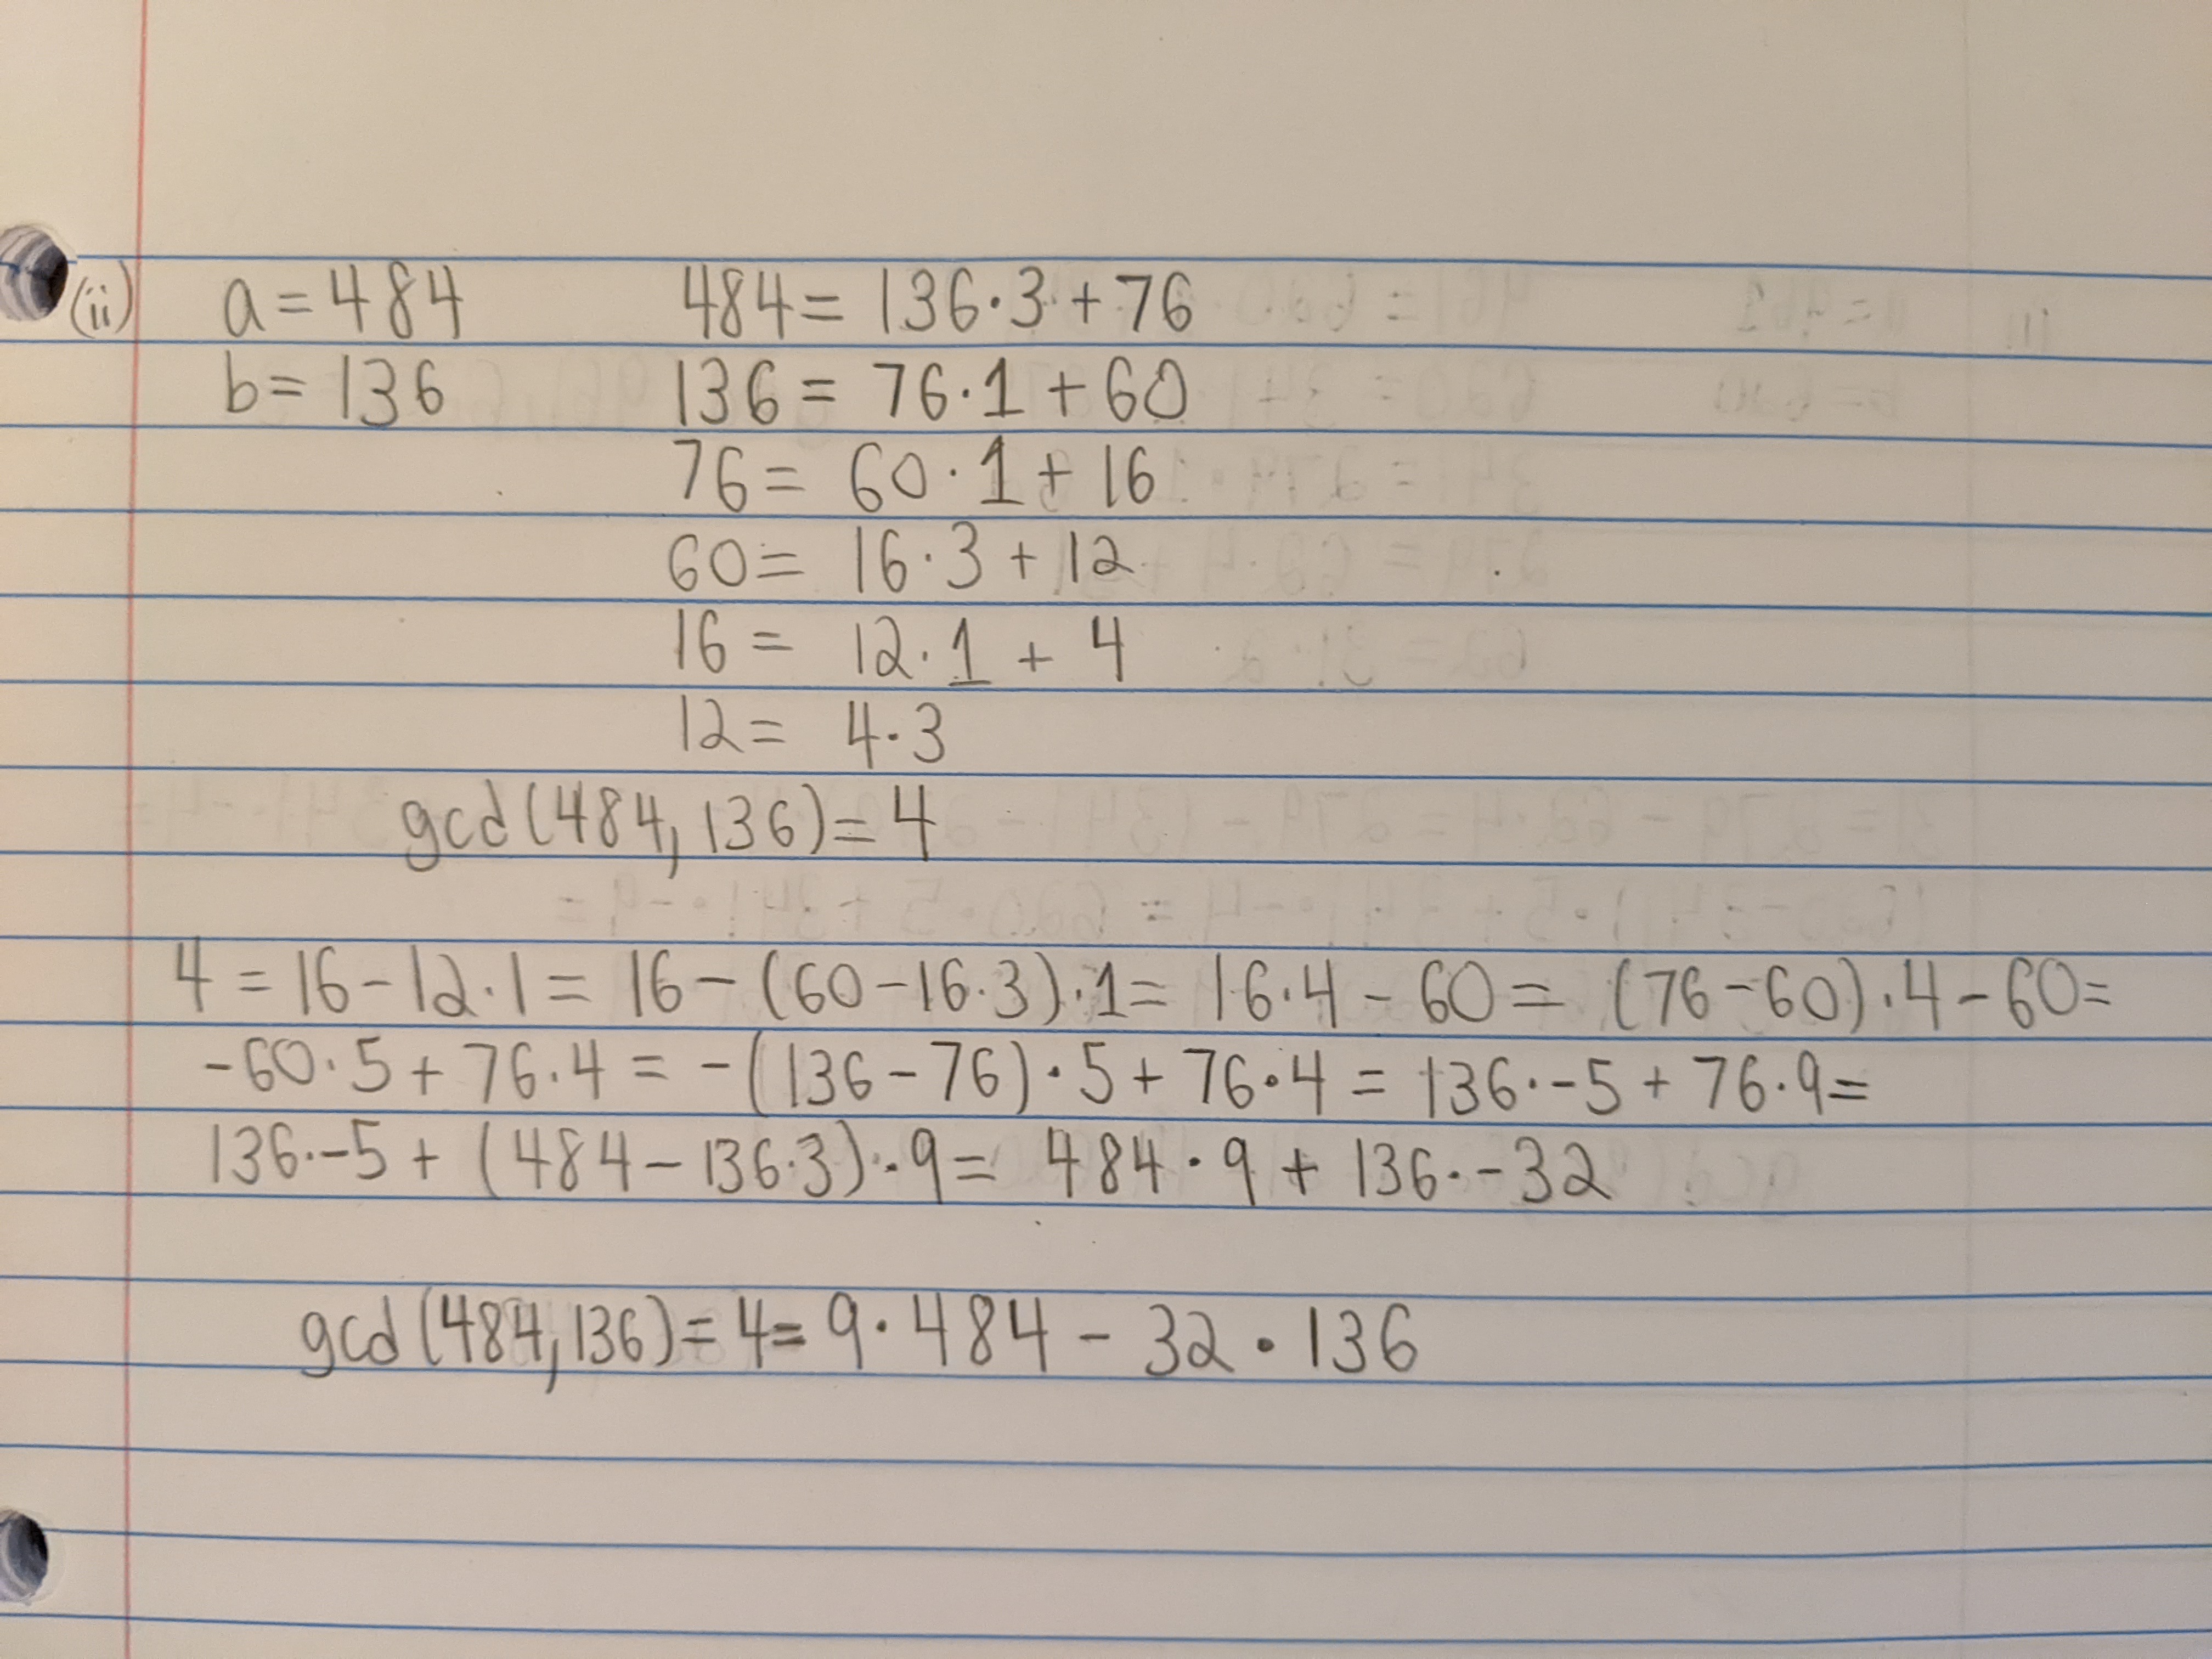 (ii) a = 484 484 = 136·3 + 76
b = 136 136 = 76·1 + 60
76 = 60·1 + 16
60 = 16·3 + 12
16 = 12·1 + 4
12 = 4·3
gcd(484, 136) = 4
4 = 16 - 12·1 = 16 - (60 - 16·3)·1 = 16·4 - 60 = (76 - 60)·4 - 60 =
-60·5 + 76·4 = -(136 - 76)·5 + 76·4 = 136·-5 + 76·9 =
136·-5 + (484 - 136·3)·9 = 484·9 + 136·-32
gcd(484, 136) = 4 = 9·484 - 32·136